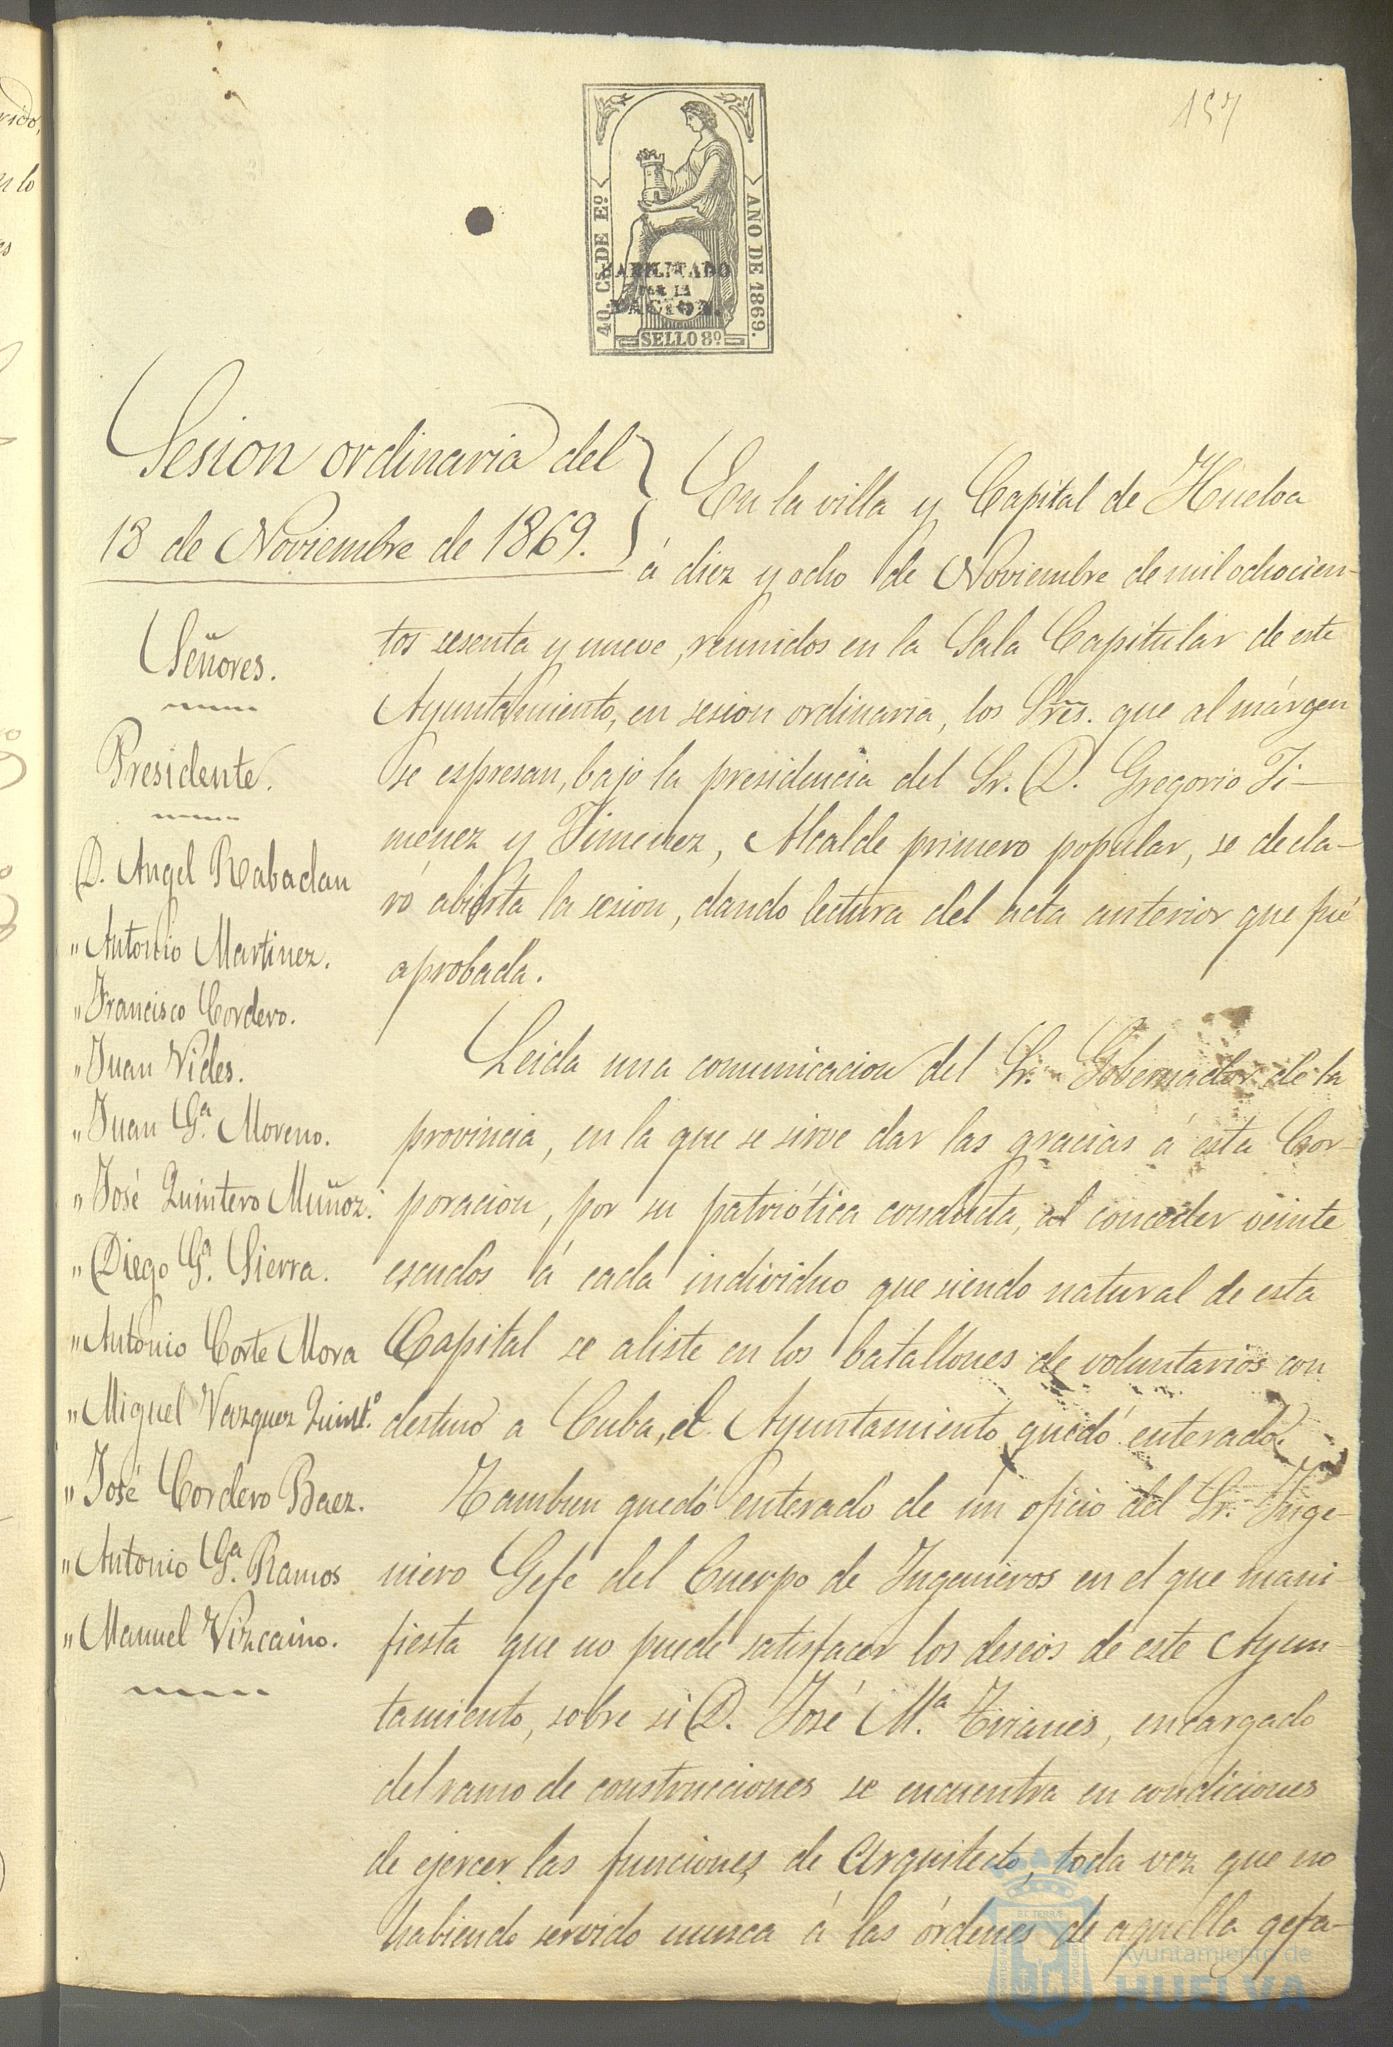 157
40 CS. DE Eº
AÑO DE 1869.
HABILITADO
POR LA
NACION.
SELLO 8º
Sesion ordinaria del
18 de Noviembre de 1869.
Señores.
Presidente.
D. Angel Rabadan
" Antonio Martinez.
" Francisco Cordero.
" Juan Vides.
" Juan Gª. Moreno.
" José Quintero Muñoz.
" Diego Gª. Sierra.
" Antonio Corte Mora
" Miguel Vazquez Quintº.
" José Cordero Baez.
" Antonio Gª. Ramos
" Manuel Vizcaino.
En la villa y Capital de Huelva
á diez y ocho de Noviembre de mil ochocien-
tos sesenta y nueve, reunidos en la Sala Capitular de este
Ayuntamiento, en sesion ordinaria, los Sres. que al márgen
se espresan, bajo la presidencia del Sr. D. Gregorio Ji-
menez y Jimenez, Alcalde primero popular, se decla-
ró abierta la sesion, dando lectura del acta anterior que fué
aprobada.
Leida una comunicacion del Sr. Gobernador de la
provincia, en la que se sirve dar las gracias á esta Cor-
poracion, por su patriótica conducta, al conceder veinte
escudos á cada individuo que siendo natural de esta
Capital se aliste en los batallones de voluntarios con
destino a Cuba, el Ayuntamiento quedó enterado.
Tambien quedó enterado de un oficio del Sr. Inge-
niero Gefe del Cuerpo de Ingenieros en el que mani-
fiesta que no puede satisfacer los deseos de este Ayun-
tamiento, sobre si D. José Mª. encargado
del ramo de construcciones se encuentra en condiciones
de ejercer las funciones de Arquitecto, toda vez que no
habiendo servido nunca á las órdenes de aquella gefa-
Ayuntamiento de
HUELVA